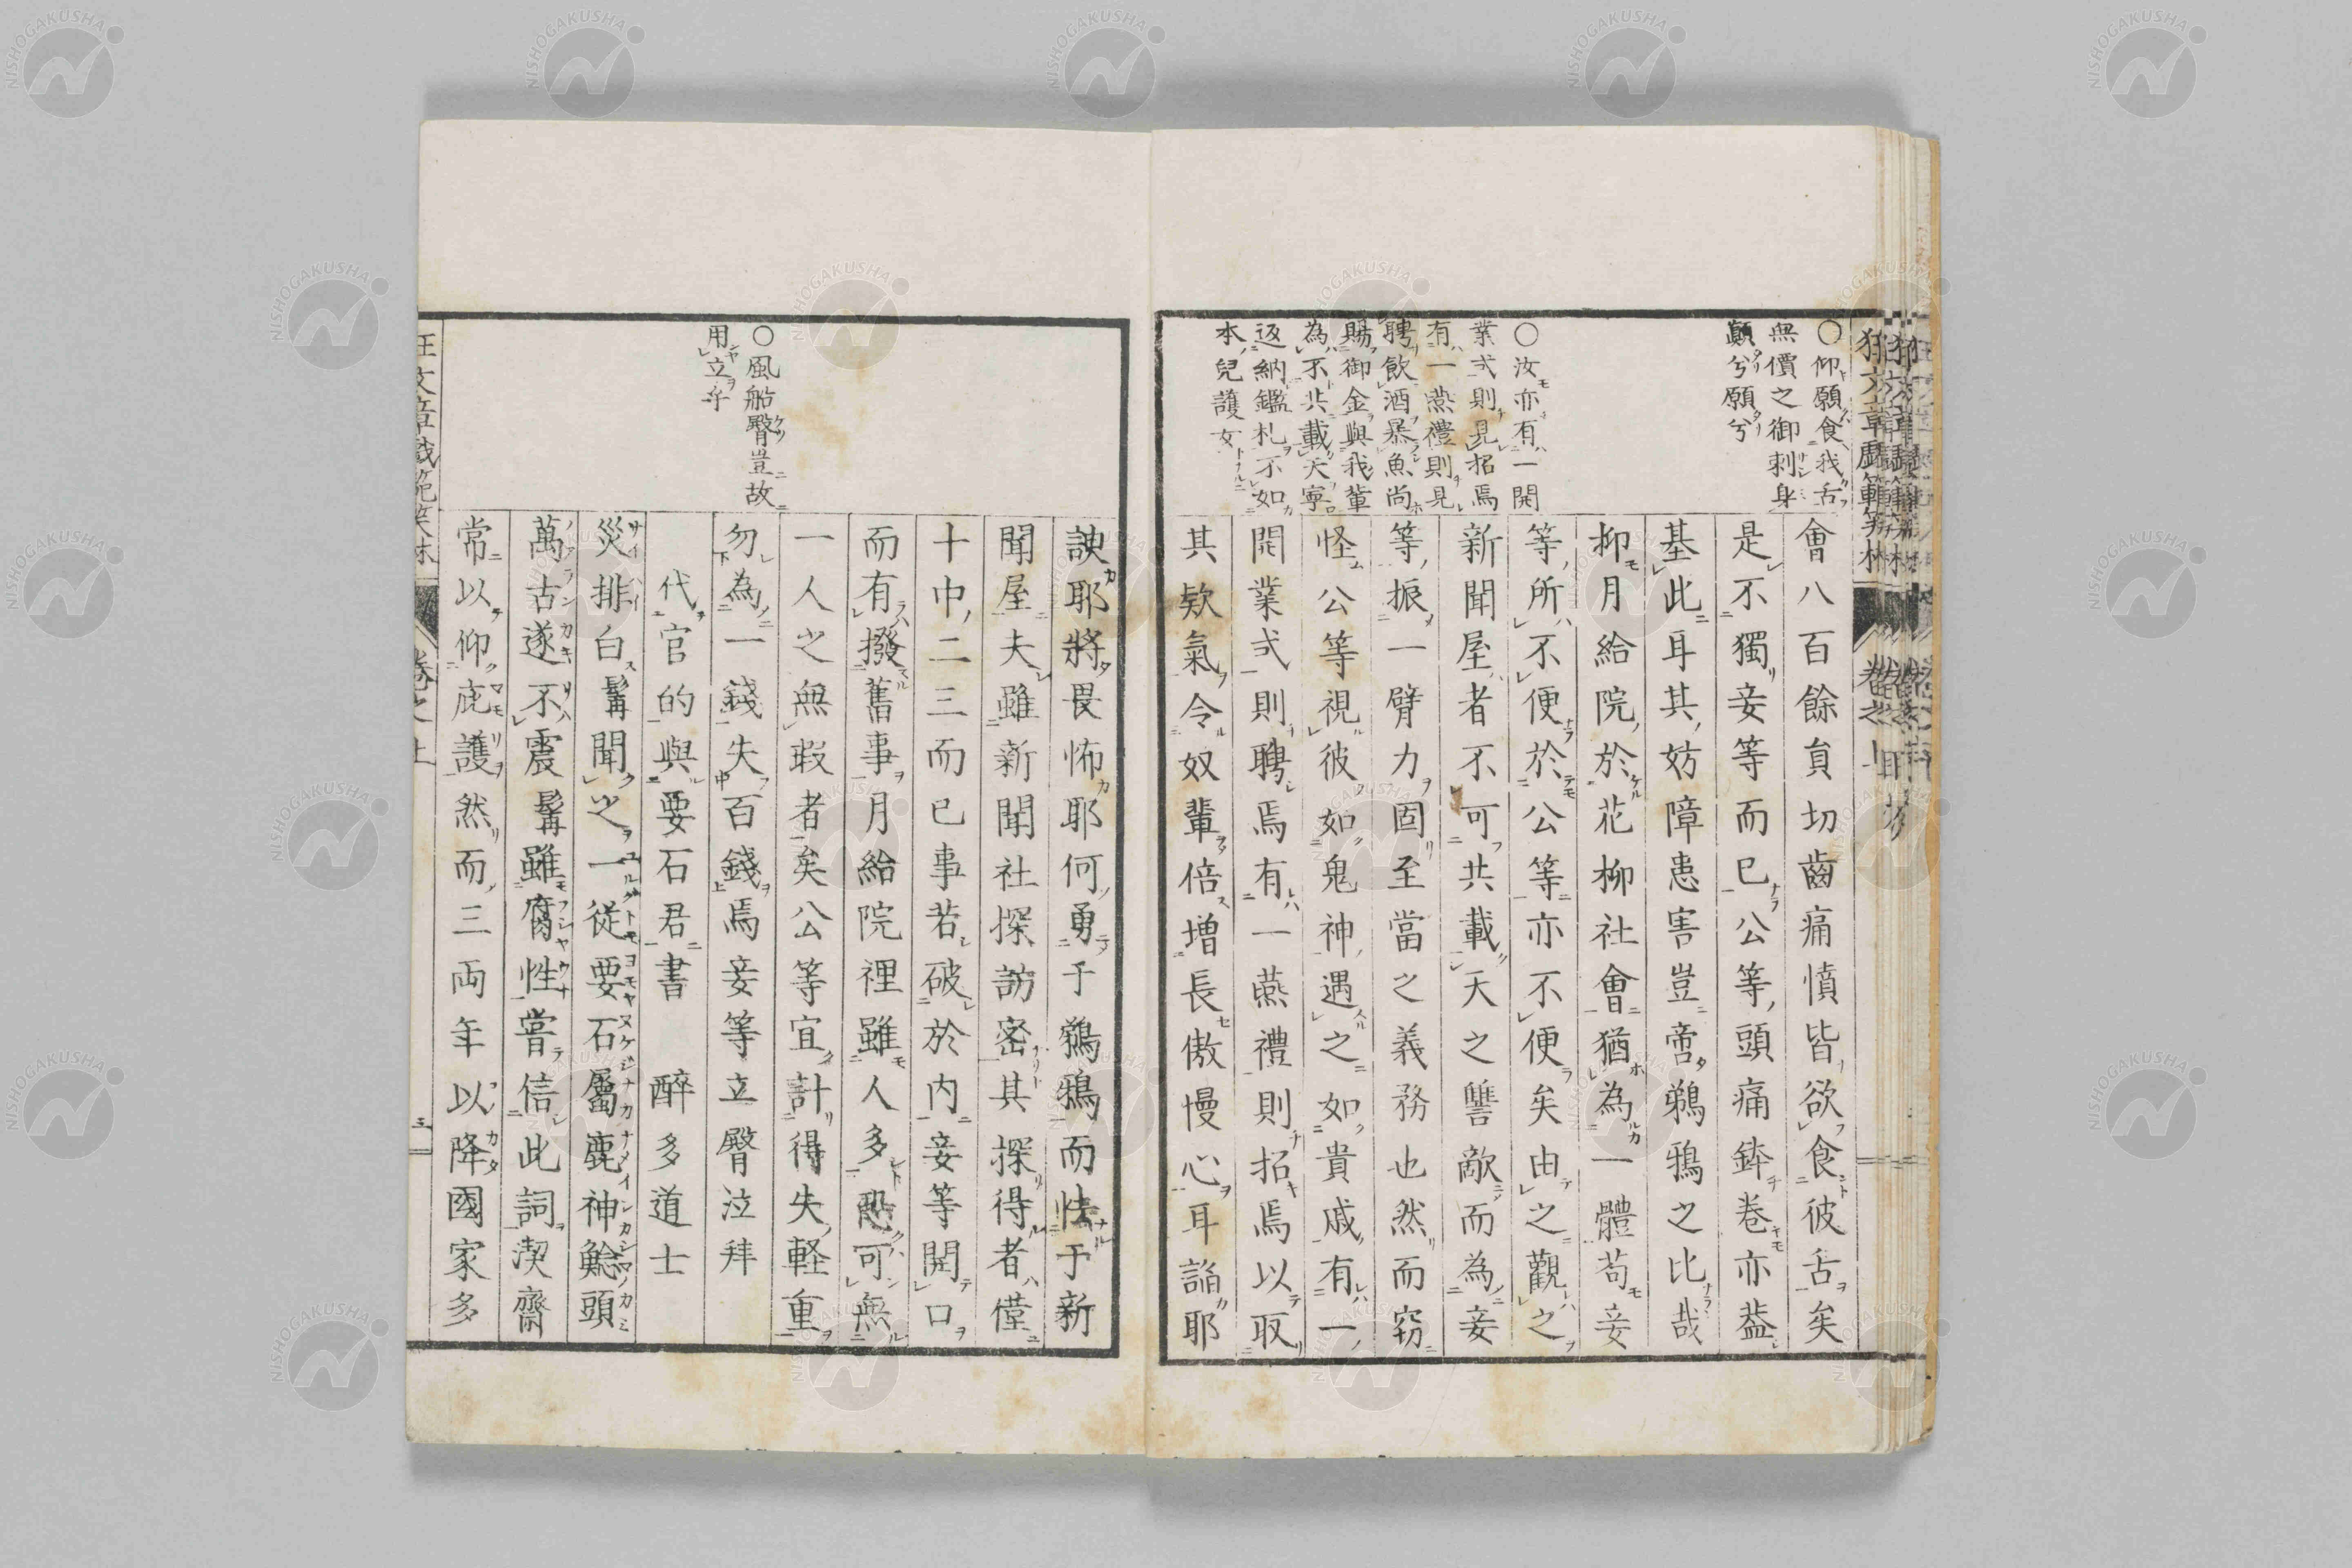 〇仰願食我舌
無價之御刺身
顛兮願兮
〇汝亦有一開
業式則見招焉
有一燕禮則見
聘飲酒暴魚尚
賜御金與我輩
為不共載天寧
返納鑑札不如
本兒護女
會八百餘員切齒痛憤皆欲食彼舌矣
是不獨妾等而已公等頭痛鉢卷亦益
基此耳其妨障患害豈啻鵜鴉之比哉
抑月給院於花柳社會猶為一體苟妾
等所不便於公等亦不便矣由之觀之
新聞屋者不可共載天之讐敵而為妾
等振一臂力固至當之義務也然而窃
怪公等視彼如鬼神遇之如貴戚有一
開業式則聘焉有一燕禮則招焉以取
其欵氣令奴輩倍增長傲慢心耳諂耶
〇風船臀豈故
用立乎
諛耶將畏怖耶何勇于鵜鴉而怯于新
聞屋夫雖新聞社探訪密其探得者僅
十中二三而已事若破於内妾等開口
而有撥舊事月給院裡雖人多恐可無
一人之無瑕者矣公等宜計得失軽重
勿為一錢失百錢焉妾等立臀泣拜
代官的與要石君書　醉多道士
災排白髯聞之一從要石屬鹿神鯰頭
萬古遂不震髯雖腐性嘗信此詞潔齋
常以仰庇護然而三両年以降國家多
NISHOGAKUSHA